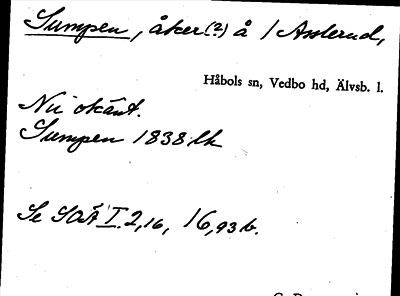 Sumpen, åker(?) å / Asslerud,
Håbols sn, Vedbo hd, Älvsb. l.
Nu okänt.
Sumpen 1838 lk
Se SOÄ I. 2,16, 16,93 b.